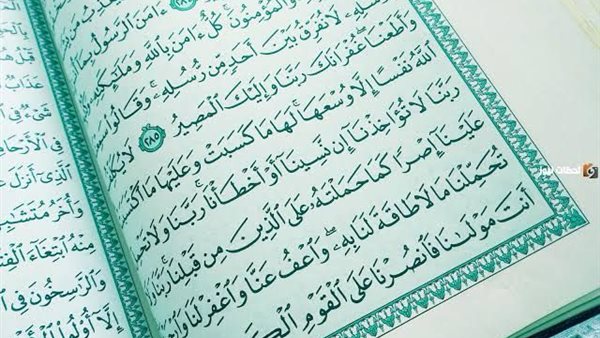 ءَامَنَ ٱلرَّسُولُ بِمَآ
وَٱلْمُؤْمِنُونَ كُلٌّ ءَامَنَ بِٱللَّهِ وَمَلَٰٓئِكَتِهِۦ
لَا نُفَرِّقُ بَيْنَ أَحَدٍ مِّن رُّسُلِهِۦ وَقَالُوا۟
وَأَطَعْنَا غُفْرَانَكَ رَبَّنَا وَإِلَيْكَ ٱلْمَصِيرُ ٢٨٥ لَا
ٱللَّهُ نَفْسًا إِلَّا وُسْعَهَا لَهَا مَا كَسَبَتْ وَعَلَيْهَا مَا
رَبَّنَا لَا تُؤَاخِذْنَآ إِن نَّسِينَآ أَوْ أَخْطَأْنَا رَبَّنَا وَلَا
عَلَيْنَآ إِصْرًا كَمَا حَمَلْتَهُۥ عَلَى ٱلَّذِينَ مِن قَبْلِنَا رَبَّنَا
تُحَمِّلْنَا مَا لَا طَاقَةَ لَنَا بِهِۦ وَٱعْفُ عَنَّا وَٱغْفِرْ لَنَا
أَنتَ مَوْلَىٰنَا فَٱنصُرْنَا عَلَى ٱلْقَوْمِ
عَذَابٌ
شَىْءٌ فِى
فِى ٱلْأَرْحَا
ٱلَّذِىٓ أَنزَلَ
وَأُخَرُ مُتَشَٰبِ
مِنْهُ ٱبْتِغَآءَ ٱلْفِ
وَٱلرَّٰسِخُونَ فِى
إِلَّآ أُو۟لُوا۟
لحظات نيوز